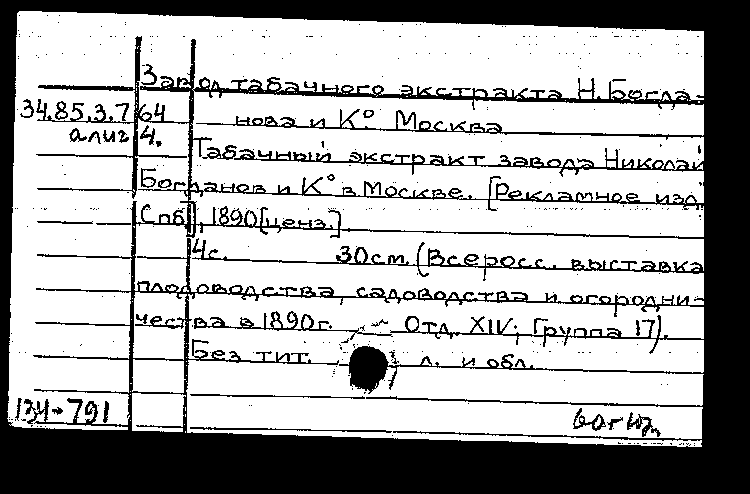 Завод табачного экстракта Н. Богда-
34.85.3.7 64 нова и К° Москва
алиг 4. Табачный экстракт завода Николай
Богданов и К° в Москве. [Рекламное изд.
Спб], 1890 [ценз.].
4с. 30см. (Всеросс. выставка
плодоводства, садоводства и огородни-
чества в 1890г. Отд. XIV; Группа 17).
Без тит. л. и обл.
134-791